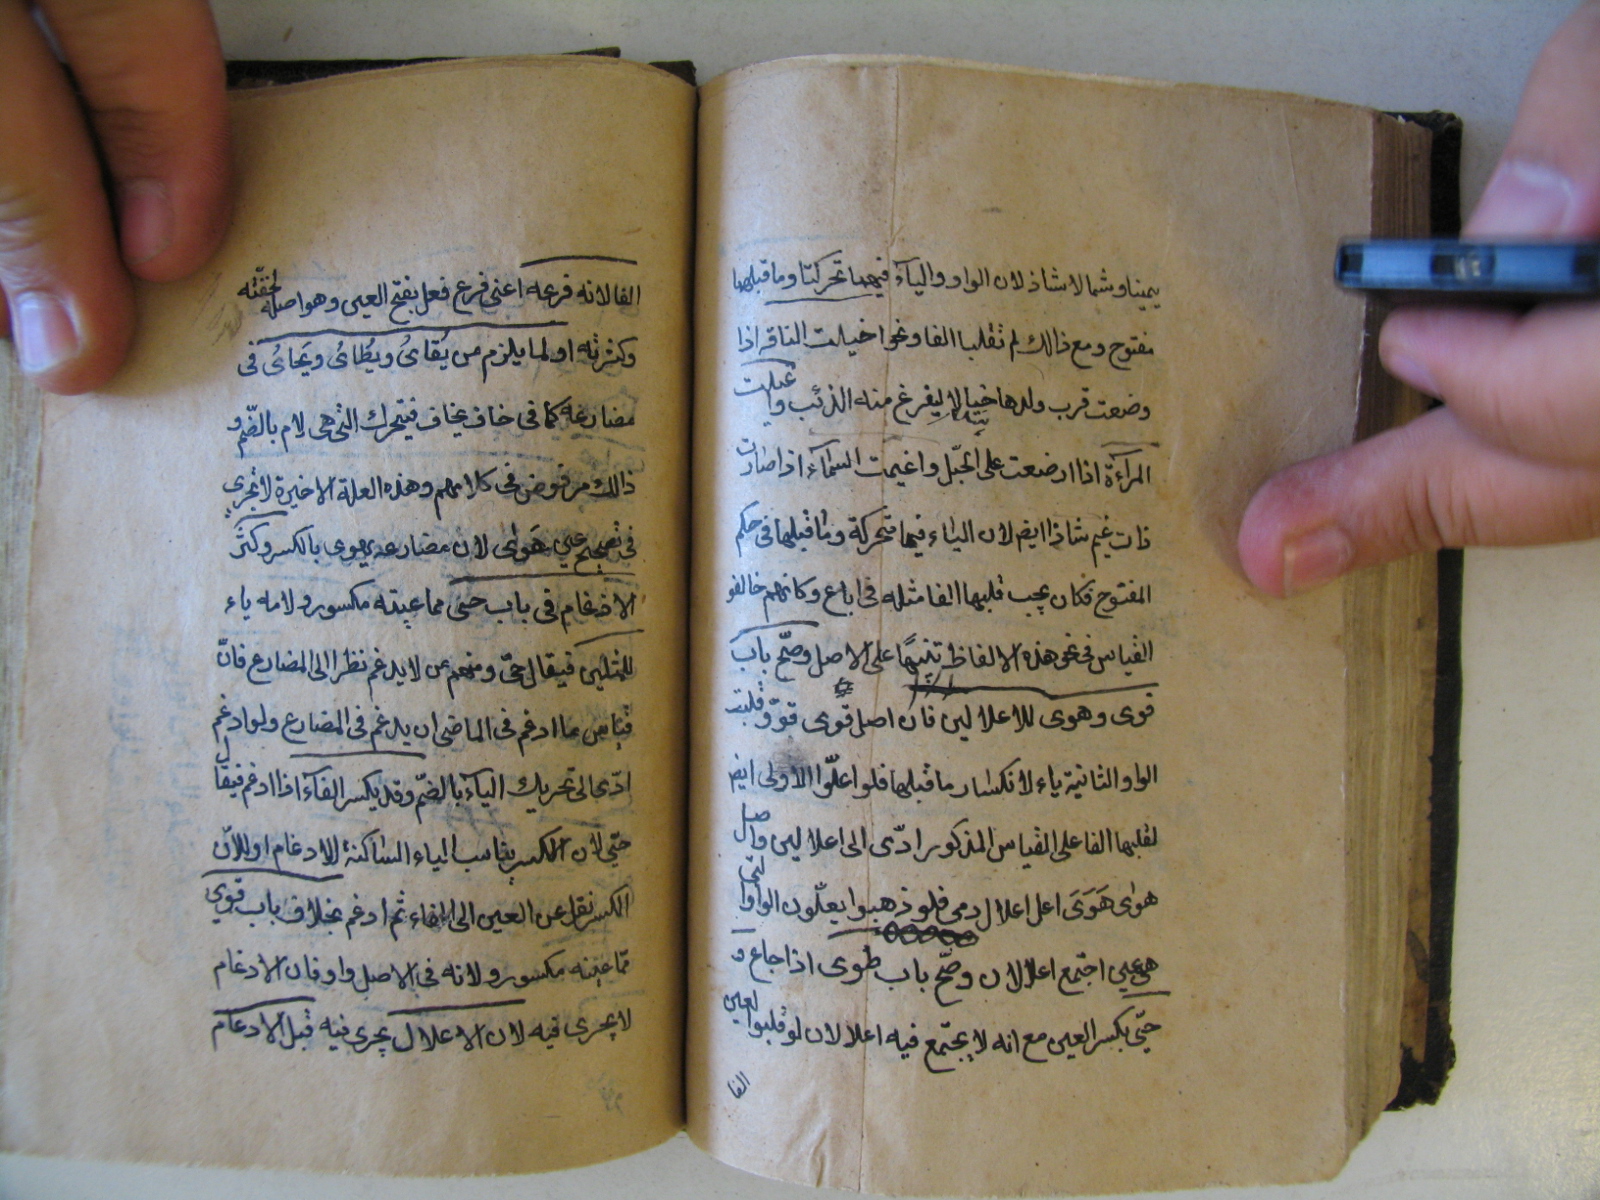 يمينا وشمالا شاذ لان الواو والياء فيهما تحركتا وما قبلهما
مفتوح ومع ذالك لم تقلبا الفا ونحو اخيلت الناقة اذا
وضعت قرب ولدها خيالا ليفرغ منه الذئب واغيلت
المرأة اذا ارضعت على الحبل واغيمت السمآء اذا صارت
ذات غيم شاذ ايضا لان الياء فيها متحركة وما قبلها فى حكم
المفتوح فكان يجب قلبها الفا مثله فى اباع وكانهم خالفو
القياس فى نحو هذه الالفاظ تنبيهًا على الاصل وصحّ باب
قوى وهوى للاعلالين فان اصل قوى قوو قلبت
الواو الثانية ياء لانكسار ما قبلها فلو اعلّوا الاولى ايض
لقلبها الفا على القياس المذكور ادّى الى اعلالين واصل
هوى هَوَىَ اعل اعلال رمى فلو ذهبوا يعلّون الواو التى
هى عين اجتمع اعلالان وصحّ باب طوى اذا جاع و
حيّى بكسر العين مع انه لا يجتمع فيه اعلالان لو قلبوا العين
الفا
الفا لانه فرعه اعنى فرع فعل بفتح العين وهو اصله لخفّته
وكثرته او لما يلزم من يُقائُ ويطُائُ ويَحائُ فى
مضارعه كما فى خاف يخاف فيتحرك التى هى لام بالضّم و
ذالك مرفوض فى كلامهم وهذه العلة الاخيرة لا تجرى
فى تصحيح عين هَوٰى لان مضارعه يهوى بالكسر وكثَر
الادغام فى باب حيى مما عينه مكسور ولامه ياء
للمثلين فيقال حىّ ومنهم من لا يدغم نظرا الى المضارع فانّ
قياس ما ادغم فى الماضى ان يدغم فى المضارع ولو ادغم
ادّى الى تحريك اليآء بالضّم وقد يكسر الفآء اذا ادغم فيقال
حىّ لان الكسر يناسب الياء الساكنة للادغام او لانّ
الكسر نقل عن العين الى الفاء ثم ادغم بخلاف باب قوى
مما عينه مكسور ولانه فى الاصل واو فان الادغام
لا يجرى فيه لان الاعلال يجرى فيه قبل الادغام